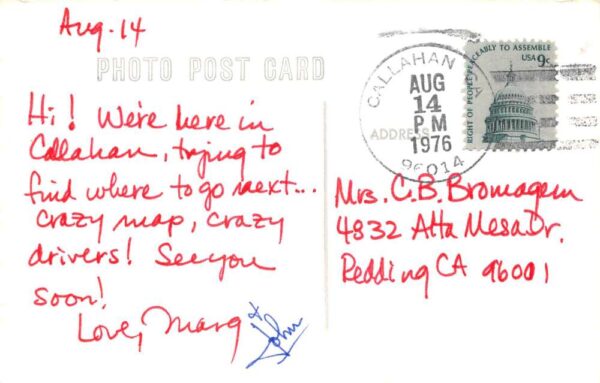 Aug. 14
PHOTO POST CARD
Hi! We're here in
Callahan, trying to
find where to go next...
crazy map, crazy
drivers! See you
soon!
Love, Marg
& John
CALLAHAN CA
AUG
14
PM
1976
96014
ADDRESS
RIGHT OF PEOPLE PEACEABLY TO ASSEMBLE
USA 9c
Mrs. C.B. Bromagem
4832 Alta Mesa Dr.
Redding CA 96001